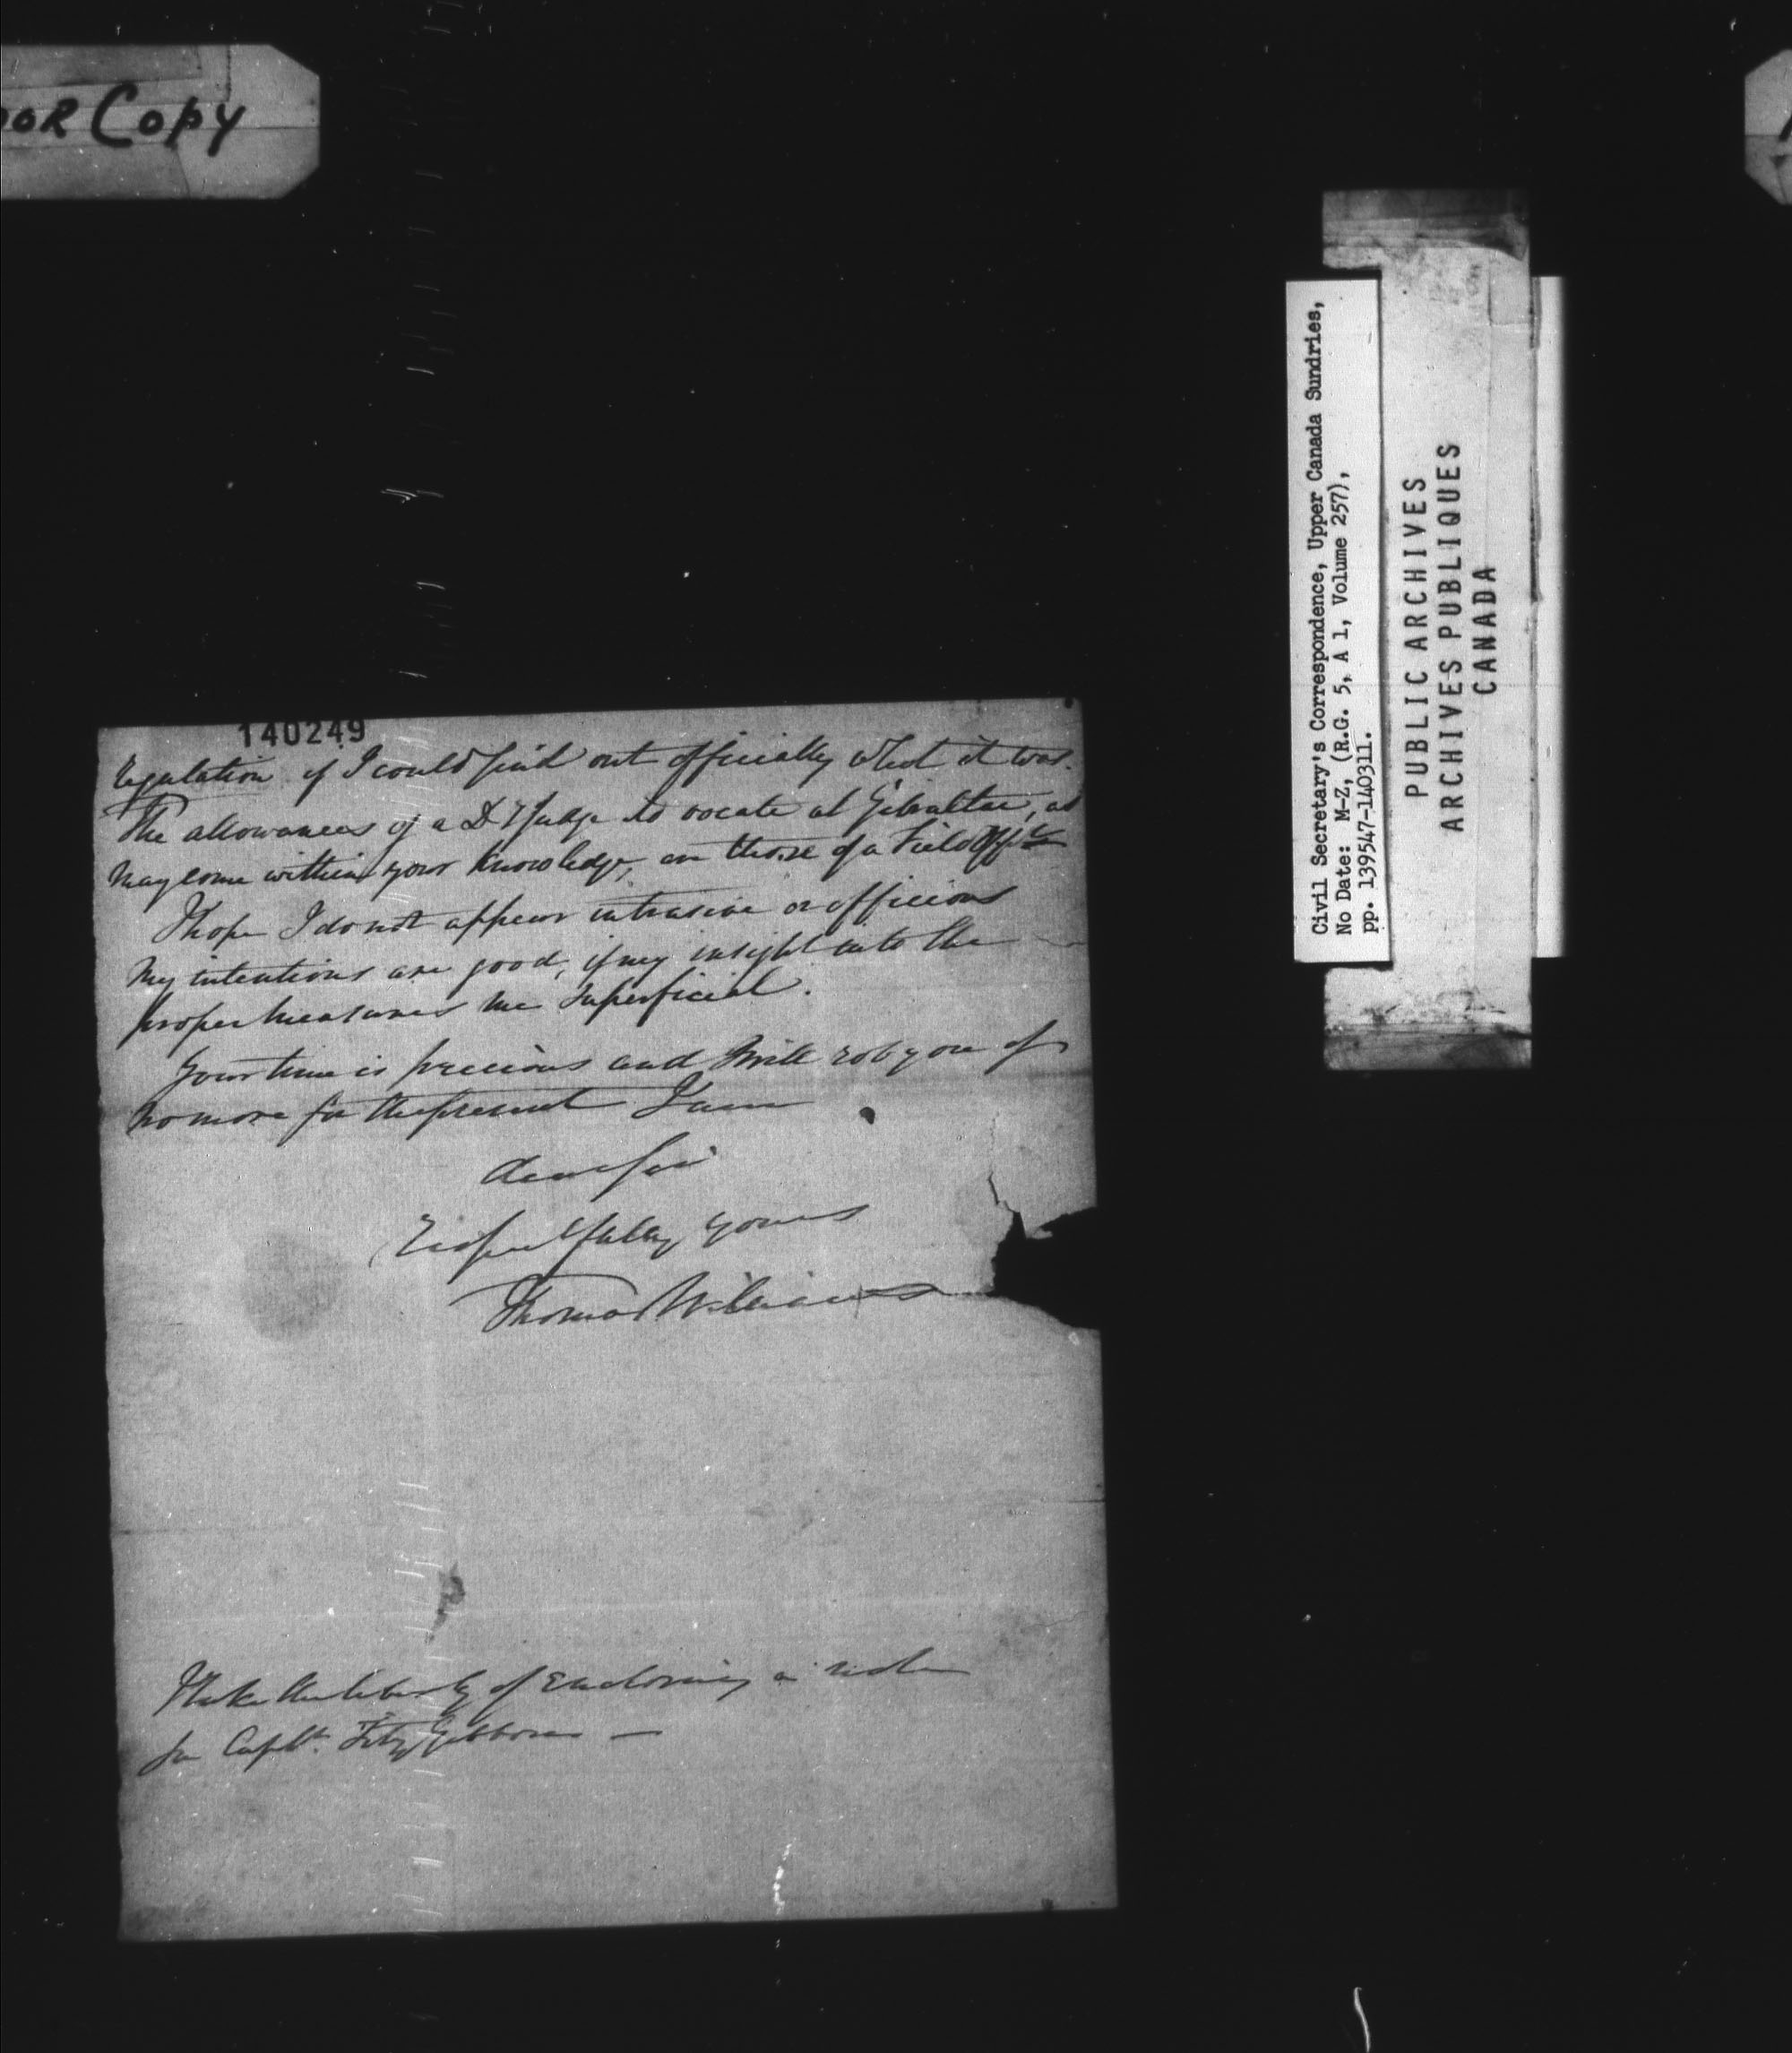 OOR COPY
140249
Regulation if I could find out officially what it was.
The allowances of a Dy Judge Advocate at Gibraltar, as
may come within your knowledge, are those of a Field Officer
I hope I do not appear intrusive or officious
My intentions are good, if my insight into the
proper measures be superficial.
Your time is precious and I will rob you of
no more for the present I am
dear Sir
Respectfully yours
Thomas Williams
I take the liberty of Enclosing a note
for Captn. FitzGibbon —
Civil Secretary's Correspondence, Upper Canada Sundries,
No Date: M-Z, (R.G. 5, A 1, Volume 257),
pp. 139547-140311.
PUBLIC ARCHIVES
ARCHIVES PUBLIQUES
CANADA